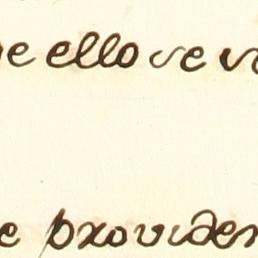 e ello se v
e providen